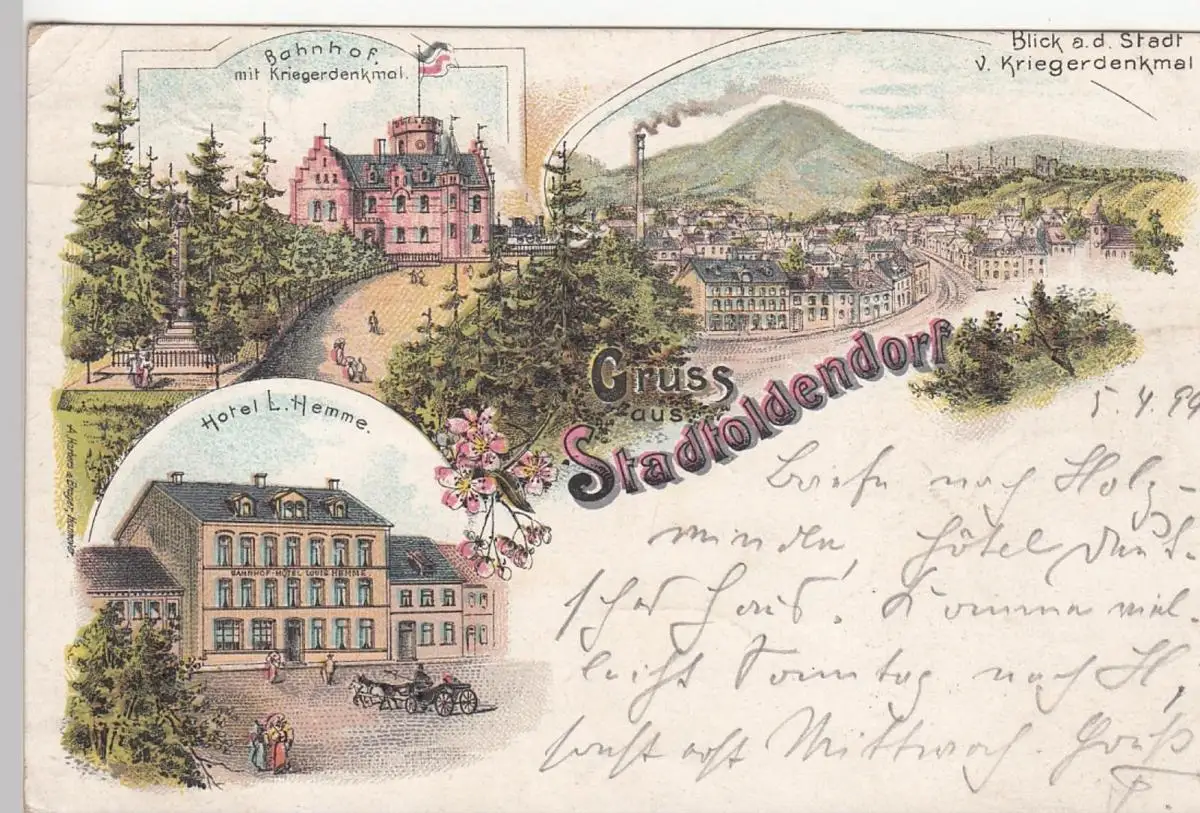 Bahnhof,
mit Kriegerdenkmal.
Blick a.d. Stadt
v. Kriegerdenkmal
Gruss
aus
Stadtoldendorf
Hotel L. Hemme.
BAHNHOF-HOTEL LOUIS HEMME
5.4.99
Briefe nach Holz-
minden, Hôtel Deut-
sches Haus. Komme viel-
leicht Sonntag nach H,
sonst erst Mittwoch. Gruß